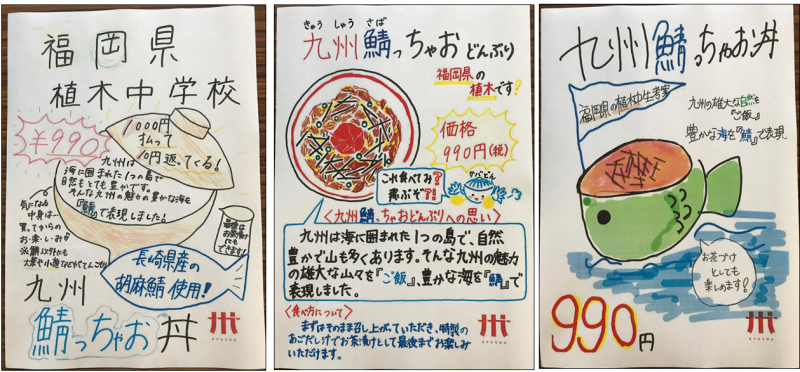 福岡県
植木中学校
¥990
1000円
払って
10円返ってくる!
九州は
海に囲まれた1つの島で
自然もとても豊かです。
そんな九州の魅力の豊かな海を
『鯖』で表現しました!
気になる
中身は…
買ってからの
お・楽・し・み♡
※鯖以外にも
大葉や小葱などがてんこ盛り
最後は
お茶漬け
にも
できます!
長崎県産の
胡麻鯖使用!
九州
鯖っちゃお丼
KYUSHU
きゅうしゅうさば
九州鯖っちゃおどんぶり
福岡県の
植木です!
価格
990円(税)
これ食べてみ?
飛ぶぞ?!
<九州鯖っちゃおどんぶりへの思い>
九州は海に囲まれた1つの島で、自然
豊かで山も多くあります。そんな九州の魅力
の雄大な山々を『ご飯』、豊かな海を『鯖』で
表現しました。
<食べ方について>
まずはそのまま召し上がっていただき、特製の
あごだし汁でお茶漬けとして最後までお楽しみ
いただけます。
KYUSHU
九州鯖っちゃお丼
福岡県の植木中生考案
九州の雄大な自然を
『ご飯』
豊かな海を『鯖』で表現
お茶づけ
としても
楽しめます!
990円
KYUSHU